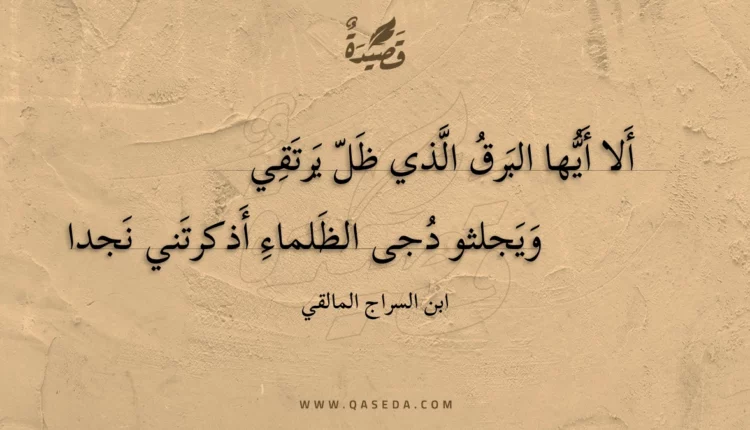 قَصِيْدَةٌ
أَلا أَيُّها البَرقُ الَّذي ظَلّ يَرتَقِي
وَيَجلثو دُجى الظَلماءِ أَذكرتَني نَجدا
ابن السراج المالقي
WWW.QASEDA.COM